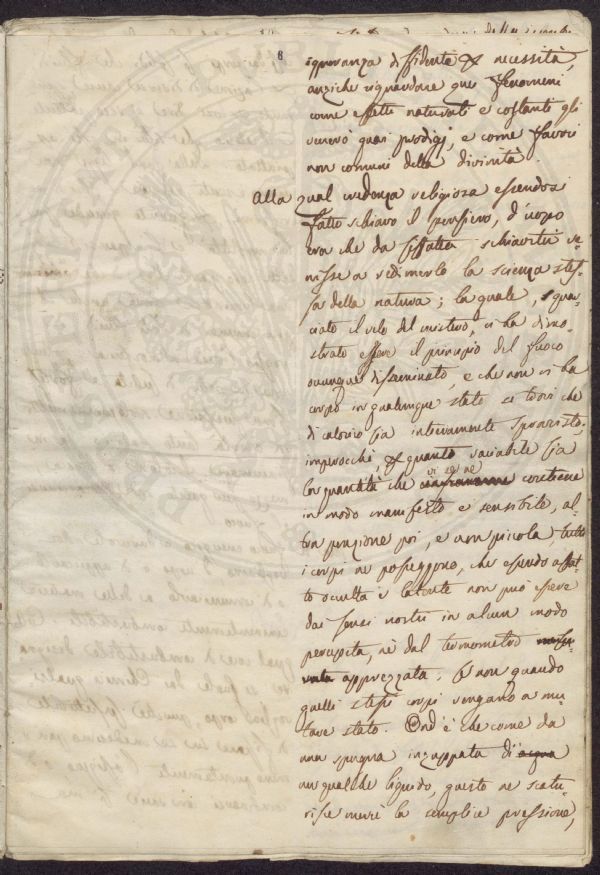 6
ignoranza diffidente & necessità,
anziche riguardare quei fenomeni
come effetti naturali e costanti gli
venerò quasi prodigj, e come favori
non comuni della divinità.
Alla qual credenza religiosa essendosi
fatto schiavo il pensiero, d'uopo
era che da siffatta schiavitù ve-
nisse a redimerlo la scienza stes-
sa della natura; la quale, squar-
ciato il velo del mistero, ci ha dimo-
strato essere il principio del fuoco
ovunque disseminato, e che non vi ha
corpo in qualunque stato si trovi che
di calorico sia interamente sprovvisto,
imperocchè, & quanto variabile sia
la quantità che vi se ne contiene
in modo manifesto e sensibile, al-
tra porzione poi, e non piccola tutti
i corpi ne posseggono, che essendo affat-
to occulta e latente non può essere
dai sensi nostri in alcun modo
percepita, nè dal termometro
apprezzata, se non quando
quelli stessi corpi vengano a mu-
tare stato. Ond'è che come da
una spugna inzuppata di acqua
un qualche liquido, questo ne scatu-
risce mercè la semplice pressione,